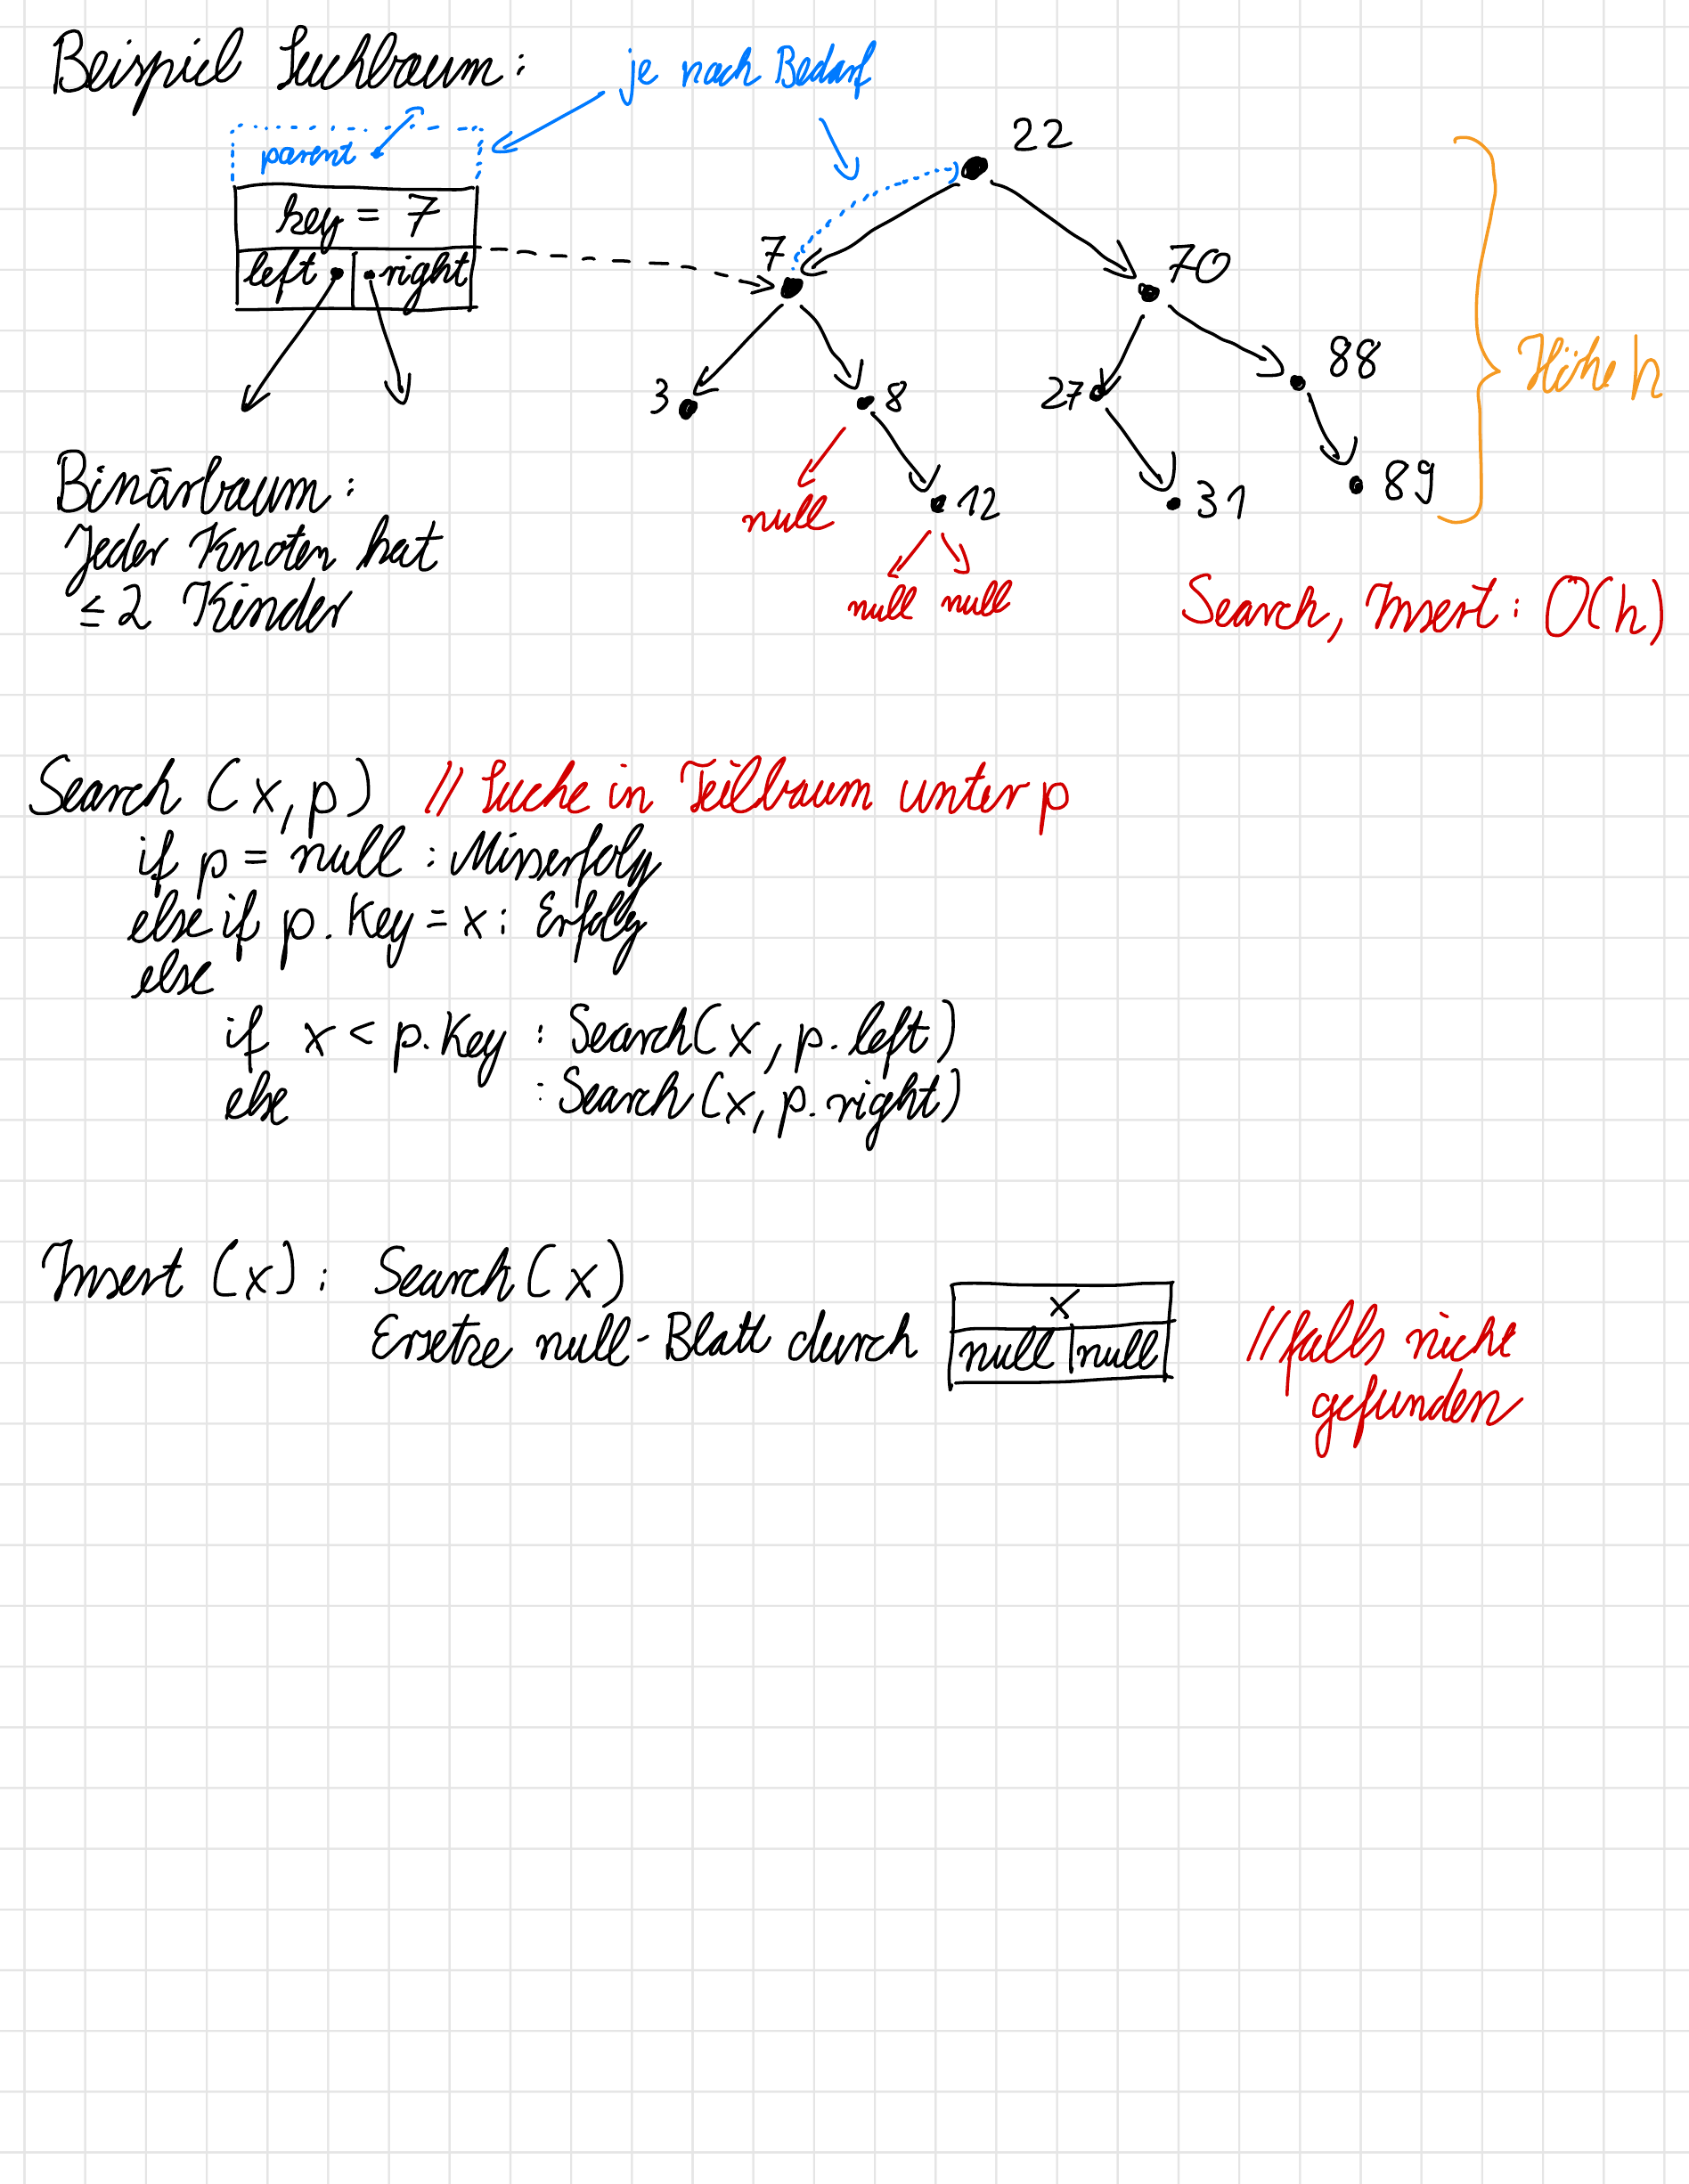 Beispiel Suchbaum:
je nach Bedarf
parent
key = 7
left right
22
7
70
3
8
27
88
12
31
89
null
null null
Höhe h
Binärbaum:
Jeder Knoten hat
≤ 2 Kinder
Search, Insert: O(h)
Search (x, p) // Suche in Teilbaum unter p
if p = null : Misserfolg
else if p. Key = x : Erfolg
else
if x < p. Key : Search(x, p. left)
else : Search(x, p. right)
Insert (x) : Search(x)
Ersetze null-Blatt durch
x
null | null
// falls nicht
gefunden